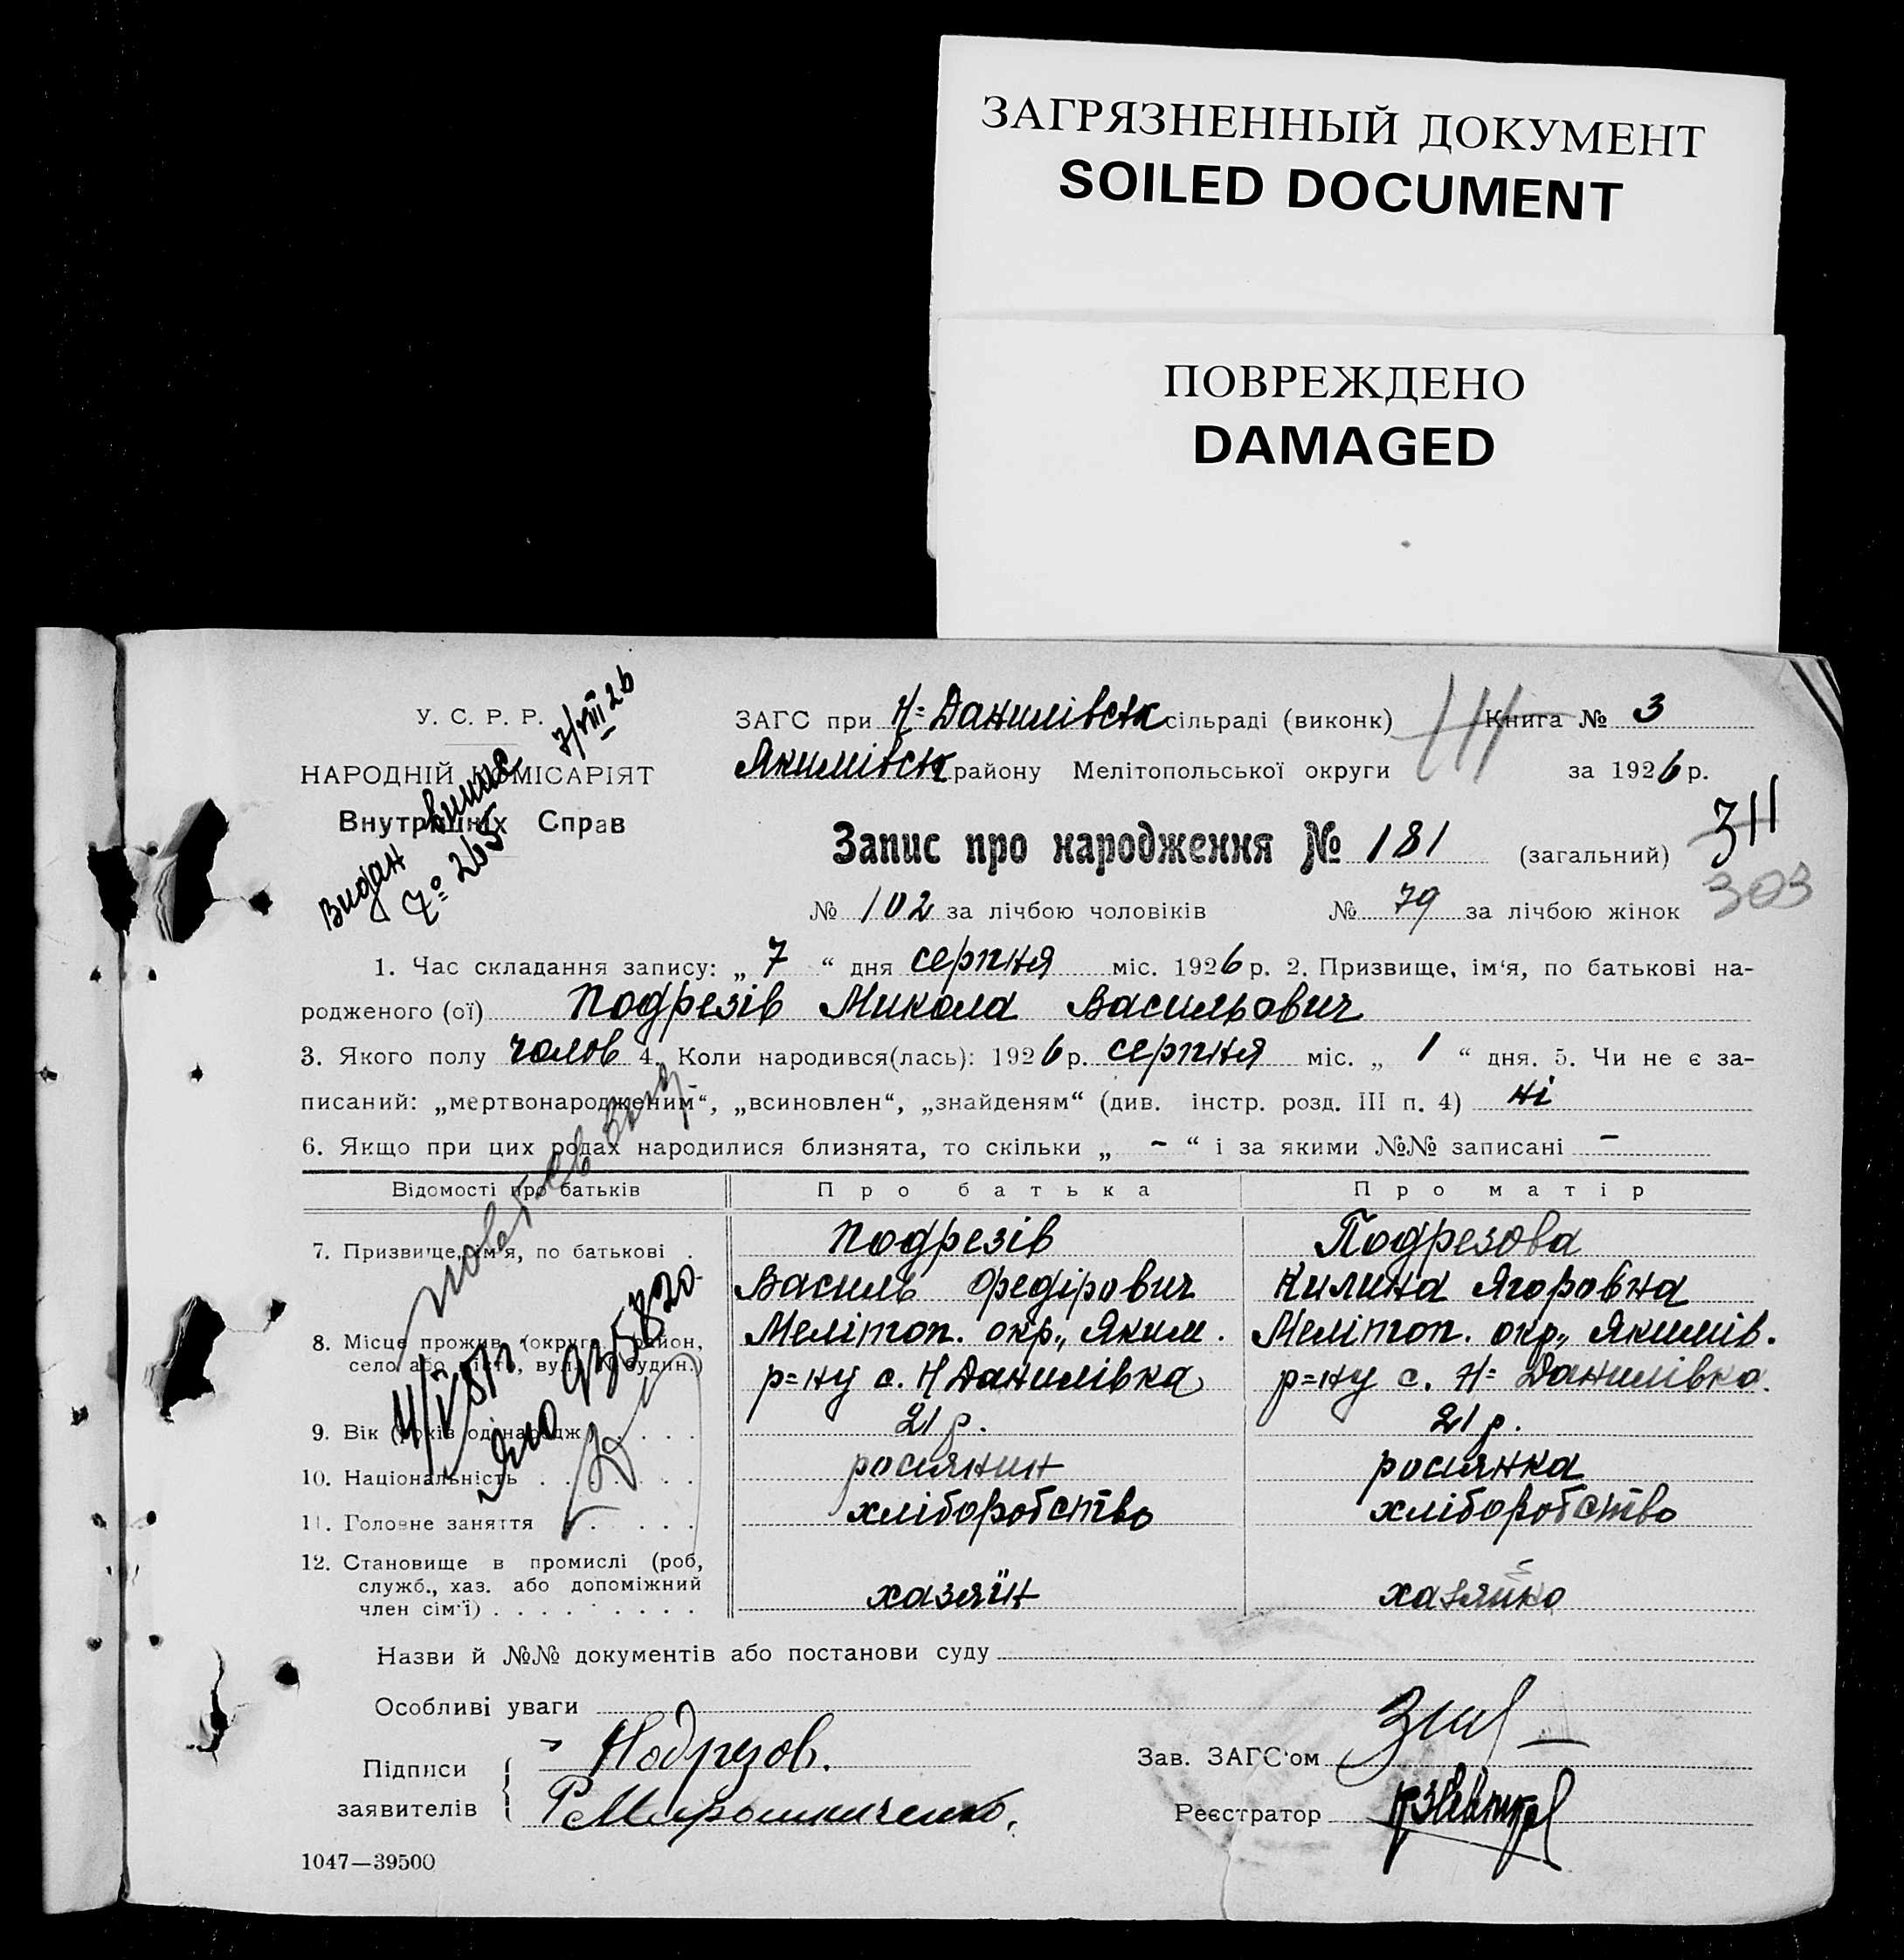 ЗАГРЯЗНЕННЫЙ ДОКУМЕНТ
SOILED DOCUMENT
ПОВРЕЖДЕНО
DAMAGED
У. С. Р. Р.
НАРОДНІЙ КОМІСАРІЯТ
Внутрішніх Справ
Видан
7/VIII 26
№ 265
ЗАГС при Н=Данилівськ сільраді (виконк) Книга № 3
Якимівськ району Мелітопольської округи за 1926 р.
311
Запис про народження № 181 (загальний)
303
№ 102 за лічбою чоловіків № 79 за лічбою жінок
1. Час складання запису: „ 7 “ дня серпня міс. 1926 р. 2. Призвище, ім'я, по батькові на-
родженого (ої) Подрезів Микола Васильович
3. Якого полу чолов 4. Коли народився(лась): 1926 р. серпня міс. „ 1 “ дня. 5. Чи не є за-
писаний: „мертвонародженим“, „всиновлен“, „знайденям“ (див. інстр. розд. III п. 4) ні
6. Якщо при цих родах народилися близнята, то скільки „ - “ і за якими №№ записані -
Відомості про батьків Про батька Про матір
7. Призвище, ім'я, по батькові . Подрезів Подрезова
Василь Федірович Килина Ягоровна
8. Місце прожив. (округа, район, Мелітоп. окр., Яким. Мелітоп. окр., Якимів.
село або місто, вул. № будин.) р=ну с. Н Данилівка р=ну с. Н= Данилівка.
9. Вік (років од народж.) . . . . 21 р. 21 р.
10. Національність . . . . . . росіянин росіянка
11. Головне заняття . . . . . хліборобство хліборобство
12. Становище в промислі (роб,
служб., хаз. або допоміжний
член сім'ї) . . . . . . . . . хазяїн хазяйка
Назви й №№ документів або постанови суду
Особливі уваги
Підписи
заявителів
Подрезов.
Мирошниченко.
Зав. ЗАГС'ом
Реєстратор
1047—39500